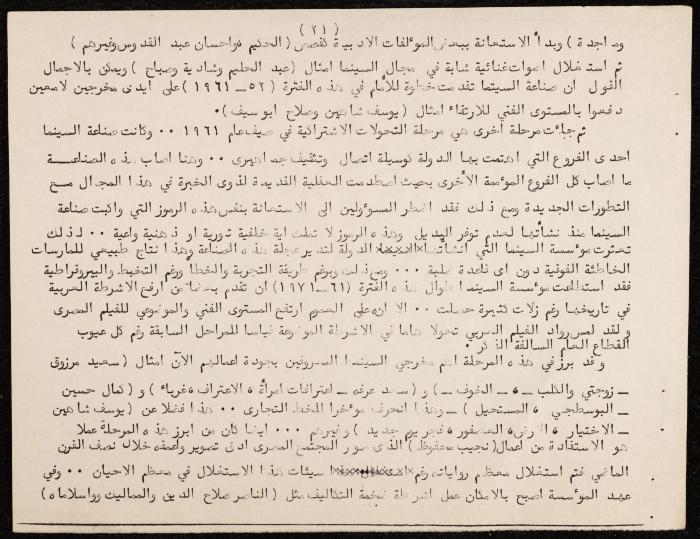 ( ٢١ )
وماجدة ) وبدأ الاستعانة ببعض المؤلفات الادبية كقصص ( الحكيم ، واحسان عبد القدوس وغيرهم )
ثم استغلال اصوات غنائية شابة في مجال السينما امثال ( عبد الحليم وشادية وصباح ) ويمكن بالاجمال
القول ان صناعة السينما تقدمت خطوة للأمام في هذه الفترة ( ٥٢ – ١٩٦١ ) على ايدى مخرجين لامعين
دفعوا بالمستوى الفني للارتقاء امثال ( يوسف شاهين وصلاح ابو سيف ) ٠
ثم جاءت مرحلة أخرى هي مرحلة التحولات الاشتراكية في صيف عام ١٩٦١ ٠٠ وكانت صناعة السينما
احدى الفروع التي اهتمت بها الدولة كوسيلة اتصال وتثقيف جماهيرى ٠٠ وهنا اصاب هذه الصناعة
ما اصاب كل الفروع المؤممة الأخرى بحيث اصطدمت العقلية القديمة لذوى الخبرة في هذا المجال مع
التطورات الجديدة ومع ذلك فقد اضطر المسؤولين الى الاستعانة بنفس هذه الرموز التي واكبت صناعة
السينما منذ نشأتها لعدم توفر البديل وهذه الرموز لا تملك اية خلفية ثورية او ذهنية واعية ٠٠ لذلك
تعثرت مؤسسة السينما التي انشأتها الدولة لتدير عجلة هذه الصناعة وهذا نتاج طبيعي للمارسات
الخاطئة الفوقية دون اى قاعدة صلبة ٠٠٠ ومع ذلك وبرغم طريقة التجربة والخطأ ورغم التخبط والبيروقراطية
فقد استطاعت مؤسسة السينما طوال هذه الفترة ( ٦١– ١٩٧١ ) ان تقدم بعضا من ارفع الاشرطة العربية
في تاريخها رغم زلات كثيرة حصلت ٠٠ الا انه على العموم ارتفع المستوى الفني والموضوعي للفيلم المصرى
ولقد لمس رواد الفيلم العربي تحولا هاما في الاشرطة الموضوعة قياسا للمراحل السابقة رغم كل عيوب
القطاع العام السالفة الذكر ٠
وقد برز في هذه المرحلة اهم مخرجي السينما المعروفين بجودة اعمالهم الآن امثال ( سعيد مرزوق
– زوجتي والكلب – ، – الخوف – ) و ( سعد عرفه – اعترافات امرأة ، الاعتراف ، غرباء ) و ( كمال حسين
– البوسطجي ، المستحيل ) – وهذا انحرف مؤخرا للخط التجارى ٠٠ هذا فضلا عن ( يوسف شاهين
– الاختيار ، الارض ، العصفور ، فجر يوم جديد ) وغيرهم ٠٠٠ ايضا كان من ابرز هذه المرحلة عملا
هو الاستفادة من اعمال ( نجيب محفوظ ) الذى صور المجتمع المصرى ادق تصوير واعمقه خلال نصف القرن
الماضي فتم استغلال معظم رواياته رغم سيئات هذا الاستغلال في معظم الاحيان ٠٠ وفي
عهد المؤسسة اصبح بالامكان عمل اشرطة ضخمة التكاليف مثل ( الناصر صلاح الدين والمماليك وواسلاماه )